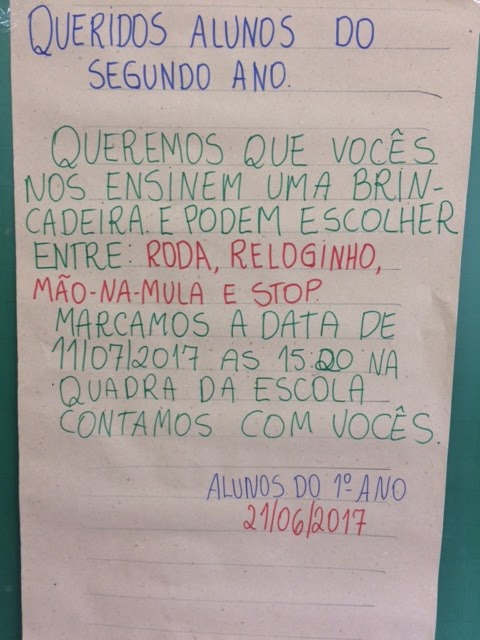 QUERIDOS ALUNOS DO
SEGUNDO ANO.
QUEREMOS QUE VOCÊS
NOS ENSINEM UMA BRIN-
CADEIRA. E PODEM ESCOLHER
ENTRE: RODA, RELOGINHO,
MÃO-NA-MULA E STOP.
MARCAMOS A DATA DE
11/07/2017 AS 15:20 NA
QUADRA DA ESCOLA
CONTAMOS COM VOCÊS.
ALUNOS DO 1º ANO
21/06/2017